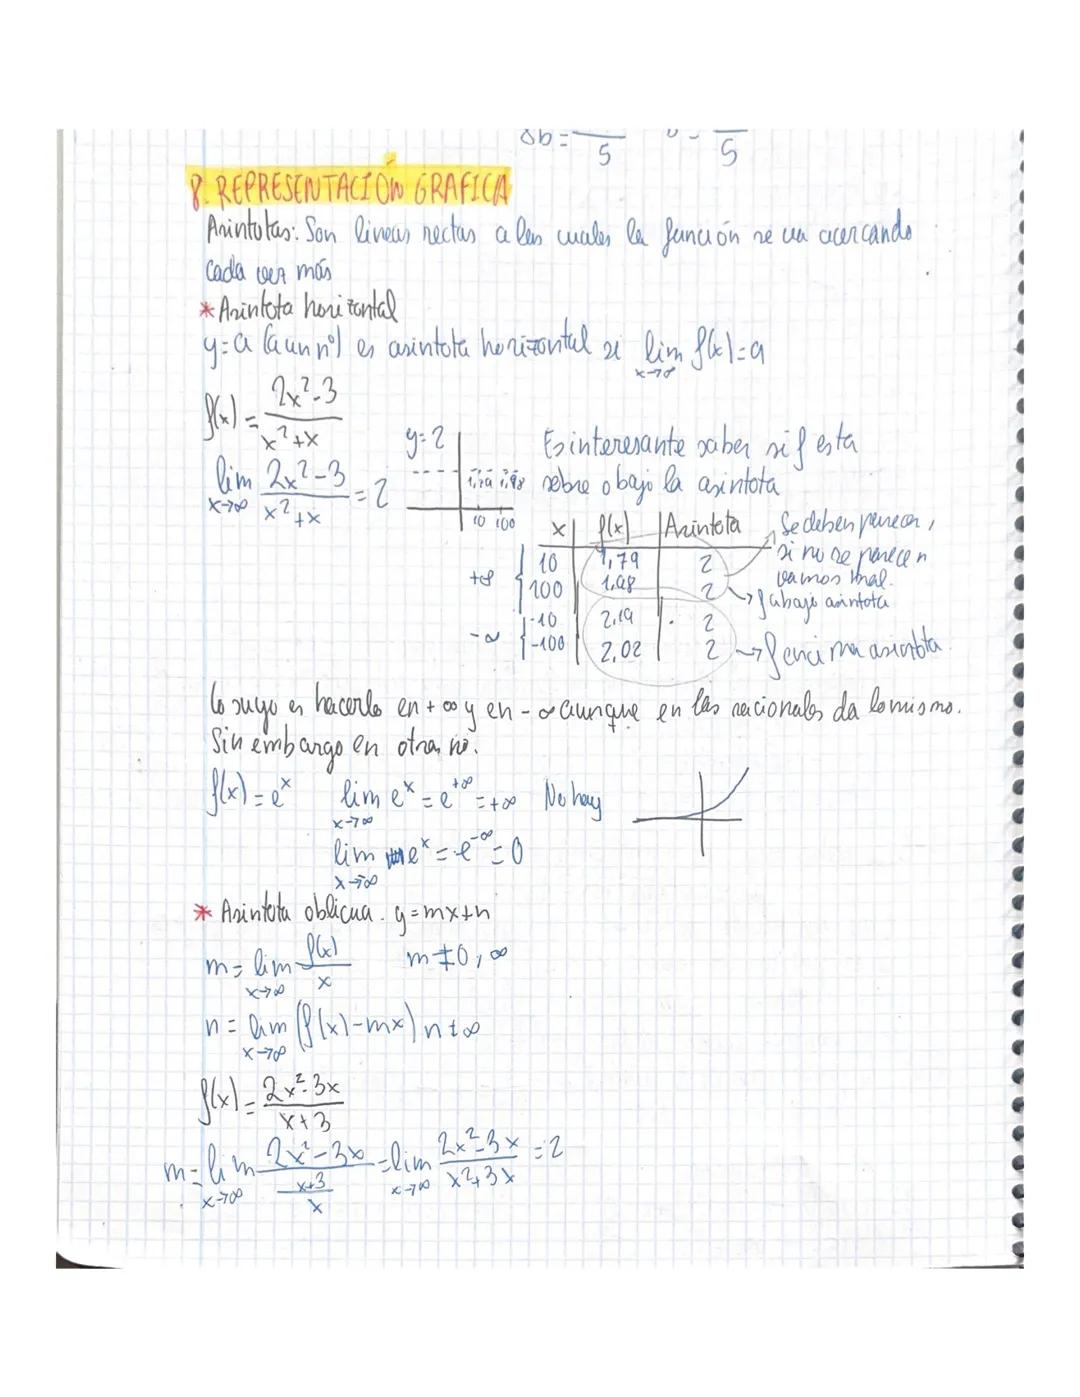 5 5
8. REPRESENTACIÓN GRAFICA
Asintotas: Son lineas rectas a las cuales la función se va acercando
cada vez más
* Asintota horizontal
y=a (a un nº) es asintota horizontal si lim f(x)=a
x→∞
f(x) = 2x²-3
x²+x
lim 2x²-3 = 2
x→∞ x²+x
y=2
1,79 1,98
10 100
Es interesante saber si f esta
sobre o bajo la asintota
x | f(x) | Asintota
+∞ { 10 | 1,79 | 2
100 | 1,98 | 2
-∞ { -10 | 2,19 | 2
-100 | 2,02 | 2
Se deben parecer,
si no se parecen
vamos mal.
→ f abajo asintota
→ f encima asintota.
Lo suyo es hacerlo en +∞ y en -∞ aunque en las racionales da lo mismo.
Sin embargo en otras no.
f(x) = eˣ lim eˣ = e⁺∞ = +∞ No hay
x→∞
lim eˣ = e⁻∞ = 0
x→∞
* Asintota oblicua. y=mx+n
m = lim f(x)/x m≠0, ∞
x→∞
n = lim (f(x)-mx) n≠∞
x→∞
f(x) = 2x²-3x
x+3
m = lim 2x²-3x = lim 2x²-3x = 2
x→∞ x+3 x→∞ x²+3x
x